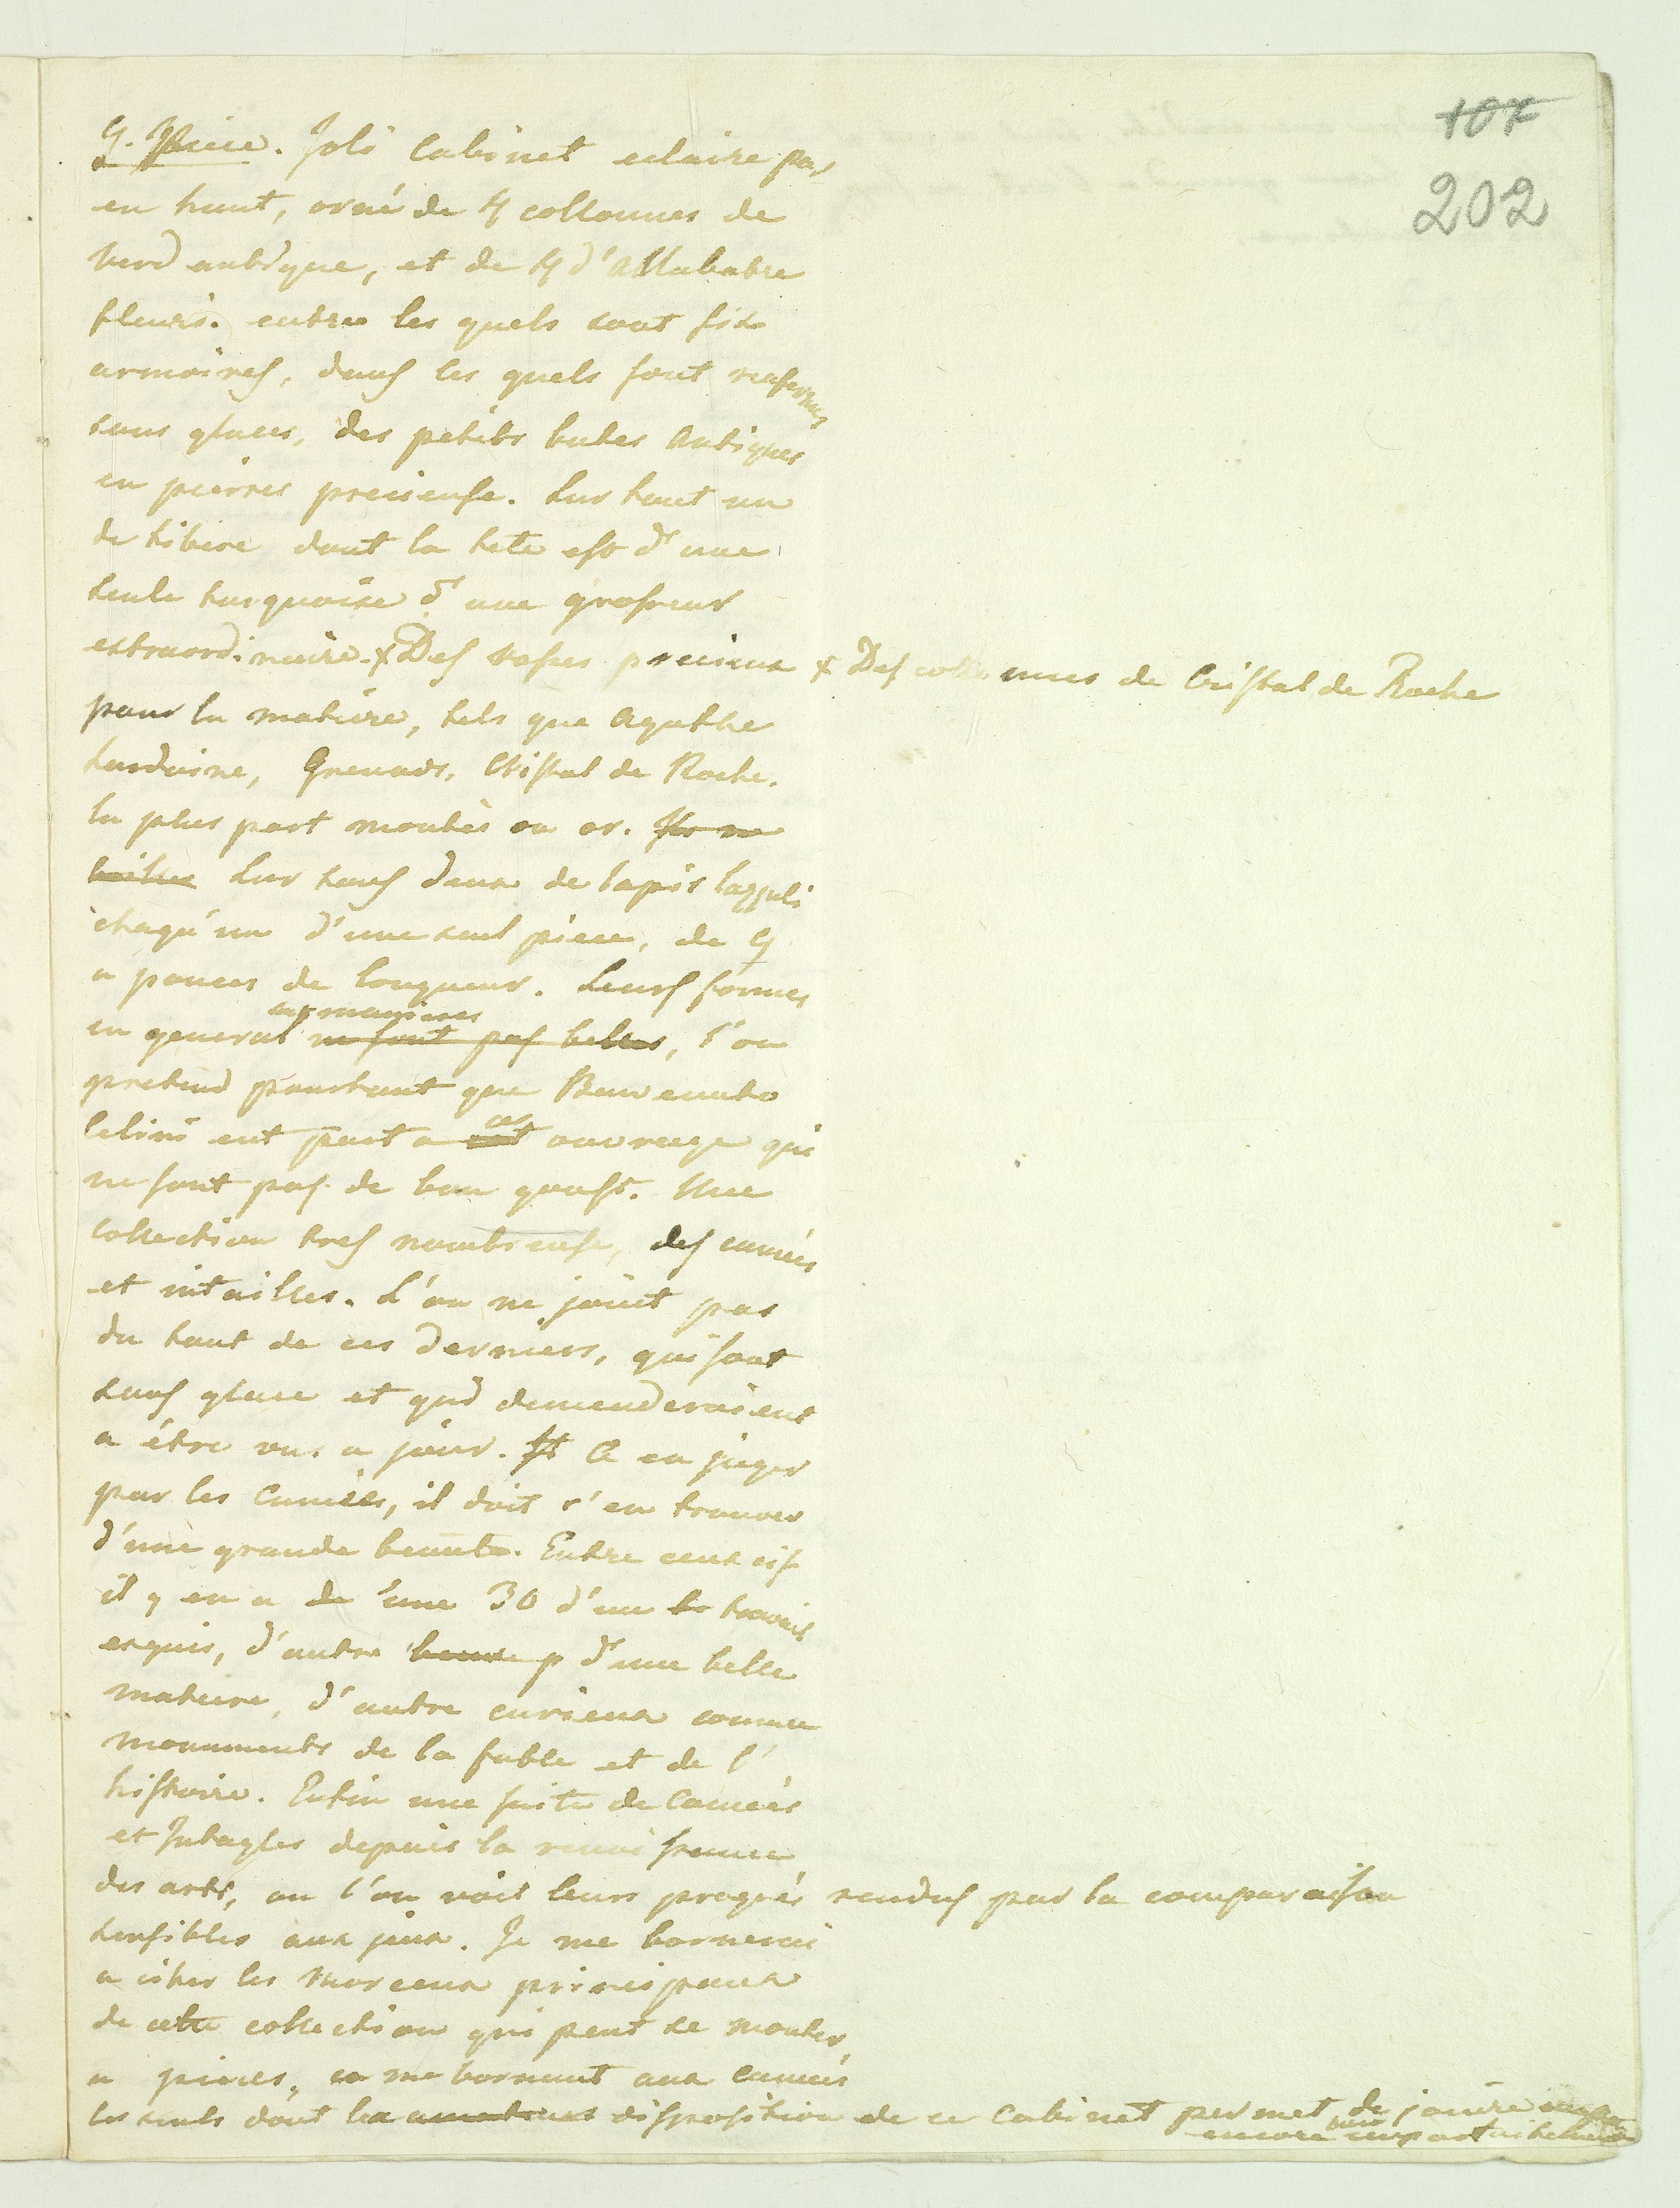 107
202
9. Piece. Joli Cabinet eclaire par
en haut, orné de 4 collonnes de
verd antique, et de 4 d'Allabatre
fleuri. entre les quels sont six
armoires, dans les quels sont renfermés
sous glaces, des petits butes Antiques
en pierres precieuse. Sur tout un
de tibere dont la tete est d'une
seule turquoise d'une grosseur
extraordinaire. x Des vases precieux
x Des collonnes de Cristal de Roche
pour la matiere, tels que Agathe
sardoine, Grenads, Cristal de Roche.
la plus part montés en or. Ils ne
Sur tous deux de lapis lazzuli
chaqu'un d'une seul piece, de 9
a pouces de longueur. Leurs formes
en general ne sont pas belles, l'on
pretend pourtant que Benvenuto
Celini eut part a ces ouvrage qui
ne sont pas de bon goust. Une
collection tres nombreuse, des camées
et intailles. L'on ne jouit pas
du tout de ces derniers, qui sont
sous glace et qui demanderaient
a être vus a jour. A en juger
par les Camées, il doit s'en trouver
d'une grande beauté. Entre ceux cis
il y en a de une 30 d'un travail
exquis, d'autre d'une belle
matiere, d'autre curieux comme
monuments de la fable et de l'
histoire. Enfin une suite de Camées
et Intagles depuis la renaissance
des arts, ou l'on voit leurs progrés rendus par la comparaison
sensibles aux jeux. Je me bornerai
a citer les Morceaux principaux
de cette collection qui peut se monter
a pieces, en me bornant aux Camées
les seuls dont la amateurs disposition de ce Cabinet permet de jouire
encore imparfaitement